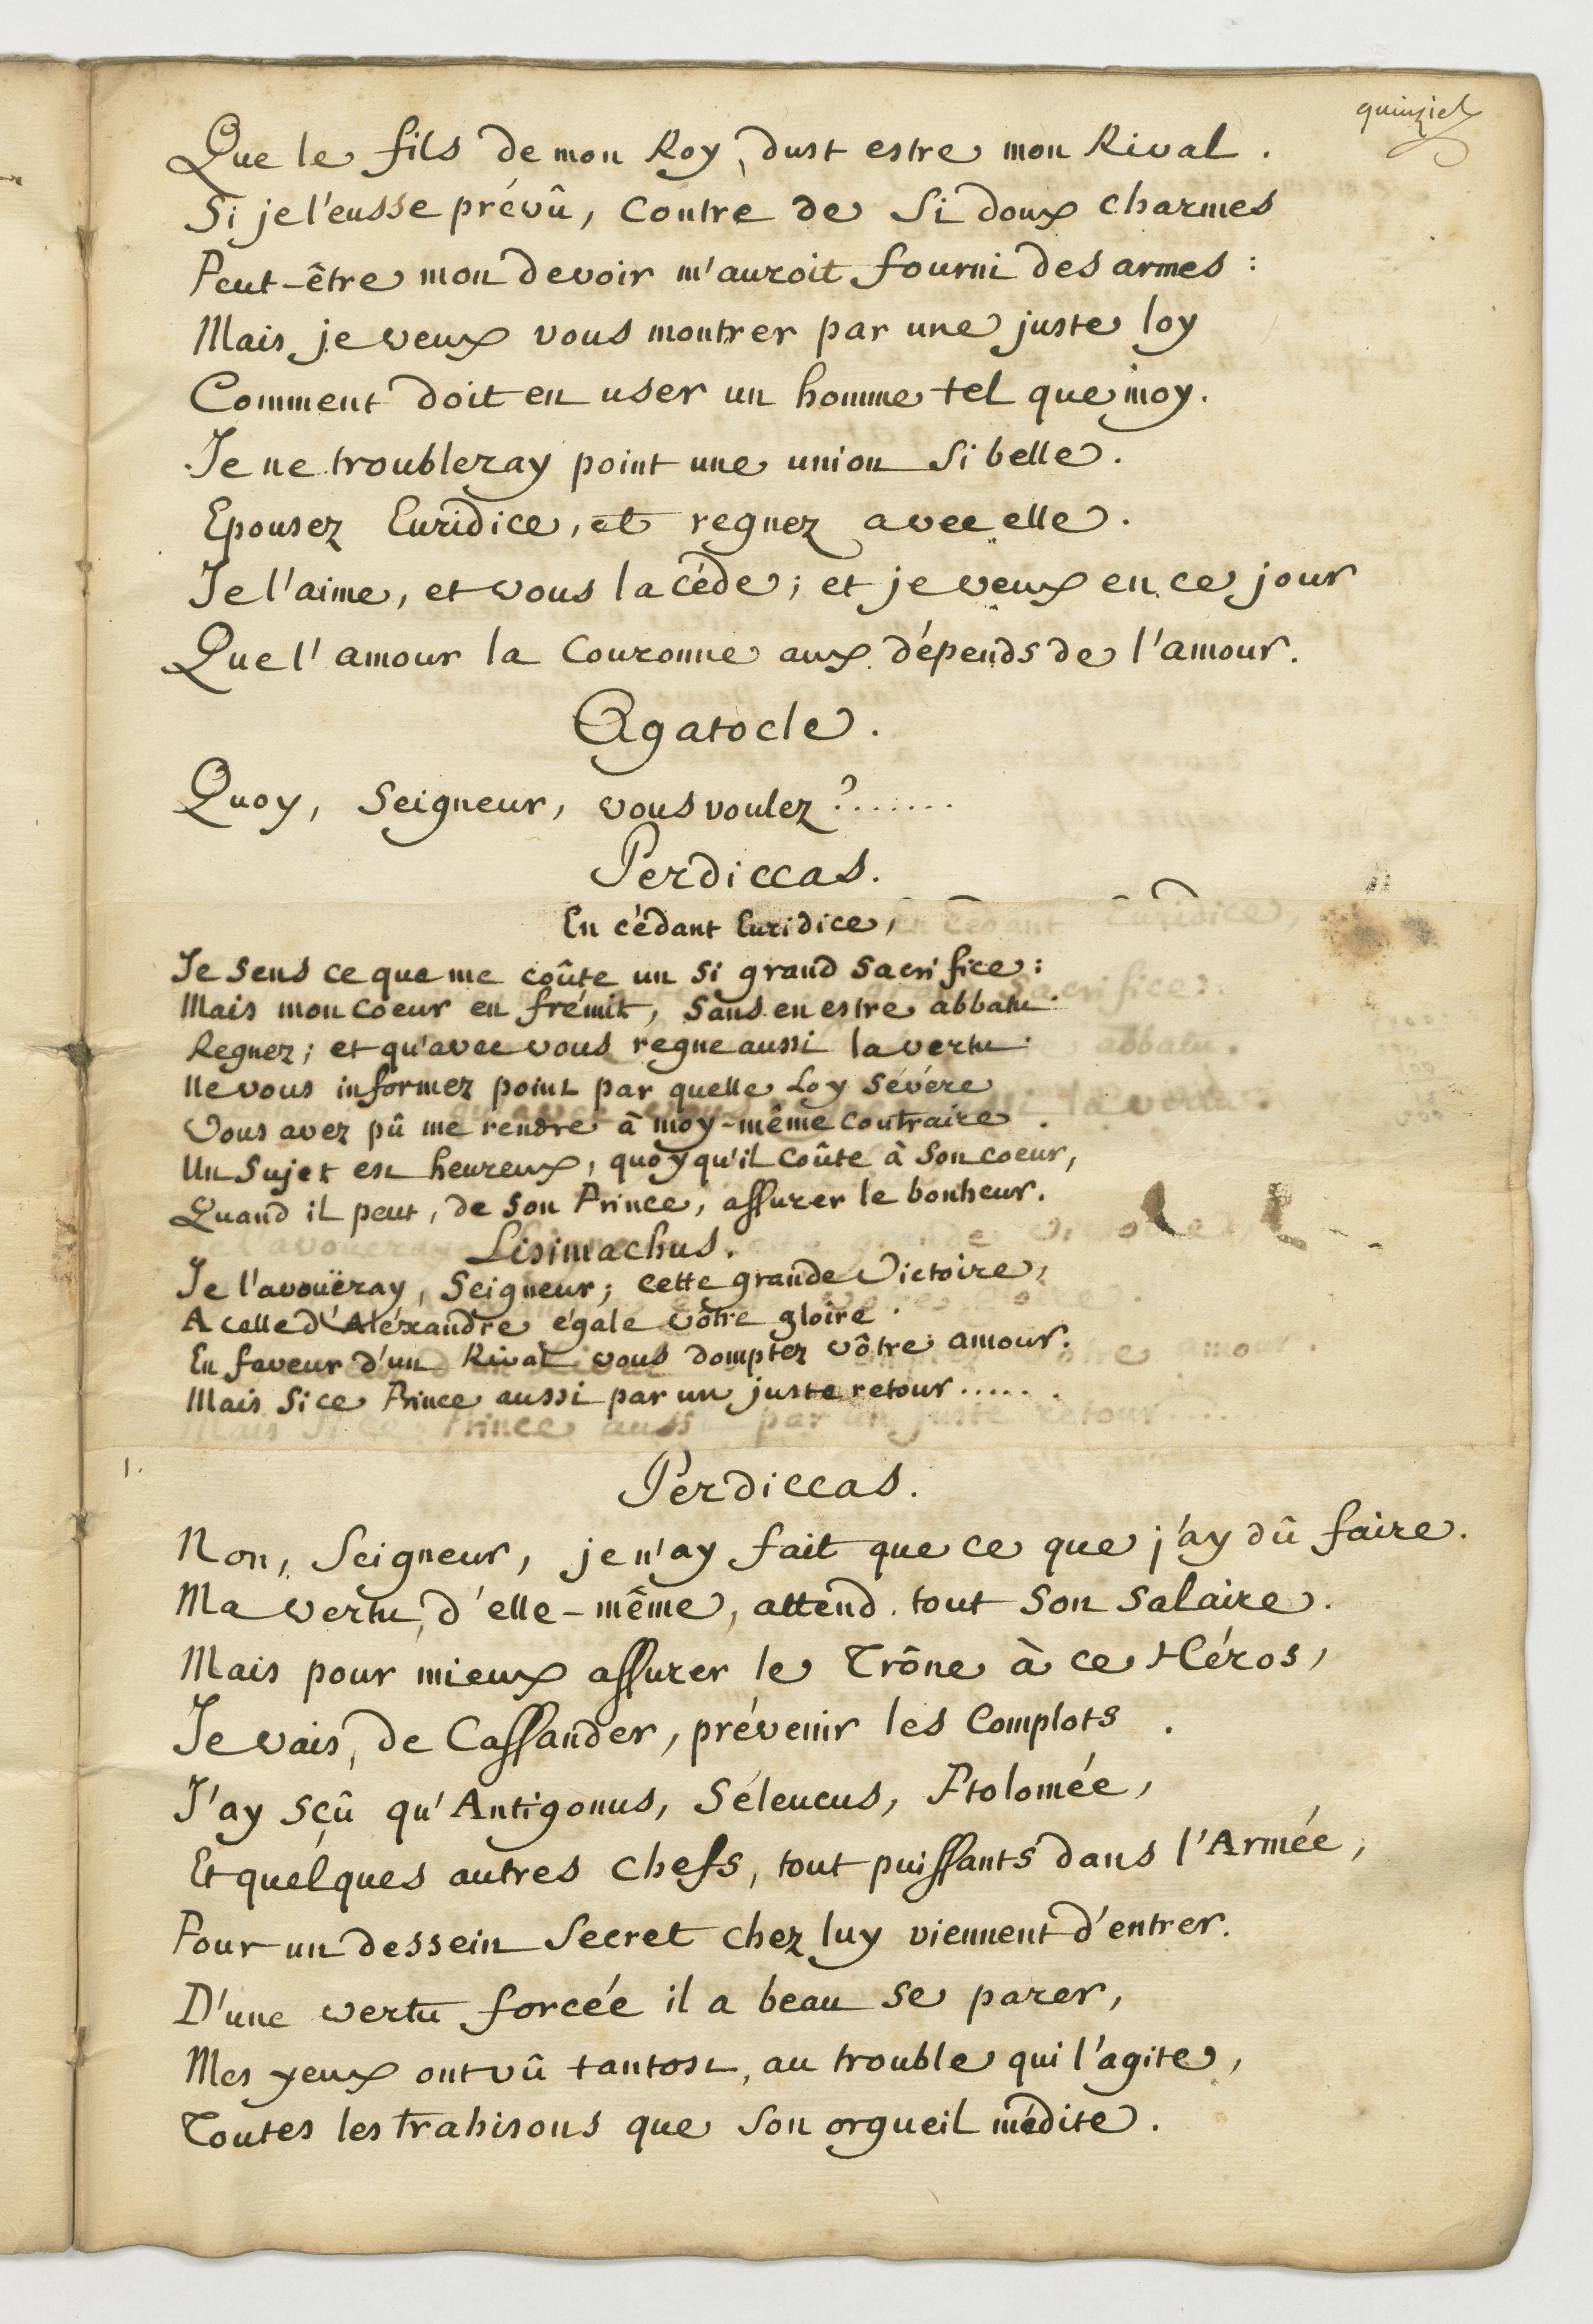 Que le fils de mon Roy, dust estre mon Rival.
Si je l'eusse prévû, contre de si doux charmes
Peut-être mon devoir m'auroit fourni des armes :
Mais je veux vous montrer par une juste loy
Comment doit en user un homme tel que moy.
Je ne troubleray point une union si belle.
Epousez Euridice, et regnez avec elle.
Je l'aime, et vous la céde; et je veux en ce jour
Que l'amour la couronne aux dépends de l'amour.
Agatocle.
Quoy, Seigneur, vous voulez ?.......
Perdiccas.
En cédant Euridice,
Je sens ce que me coûte un si grand sacrifice :
Mais mon coeur en frémit, sans en estre abbatu.
Regnez; et qu'avec vous regne aussi la vertu.
Ne vous informez point par quelle Loy sévére
Vous avez pû me rendre à moy-même contraire.
Un Sujet est heureux, quoyqu'il coûte à son coeur,
Quand il peut, de son Prince, assurer le bonheur.
Lisimachus.
Je l'avoüeray, Seigneur; cette grande Victoire,
A celle d'Aléxandre égale vôtre gloire.
En faveur d'un Rival vous domptez vôtre amour.
Mais si ce Prince aussi par un juste retour......
1.
Perdiccas.
Non, Seigneur, je n'ay fait que ce que j'ay dû faire.
Ma vertu, d'elle-même, attend tout son salaire.
Mais pour mieux assurer le Trône à ce Héros,
Je vais, de Cassander, prévenir les Complots.
J'ay sçû qu'Antigonus, Séleucus, Ptolomée,
Et quelques autres chefs, tout puissants dans l'Armée,
Pour un dessein secret chez luy viennent d'entrer.
D'une vertu forcée il a beau se parer,
Mes yeux ont vû tantost, au trouble qui l'agite,
Toutes les trahisons que son orgueil médite.